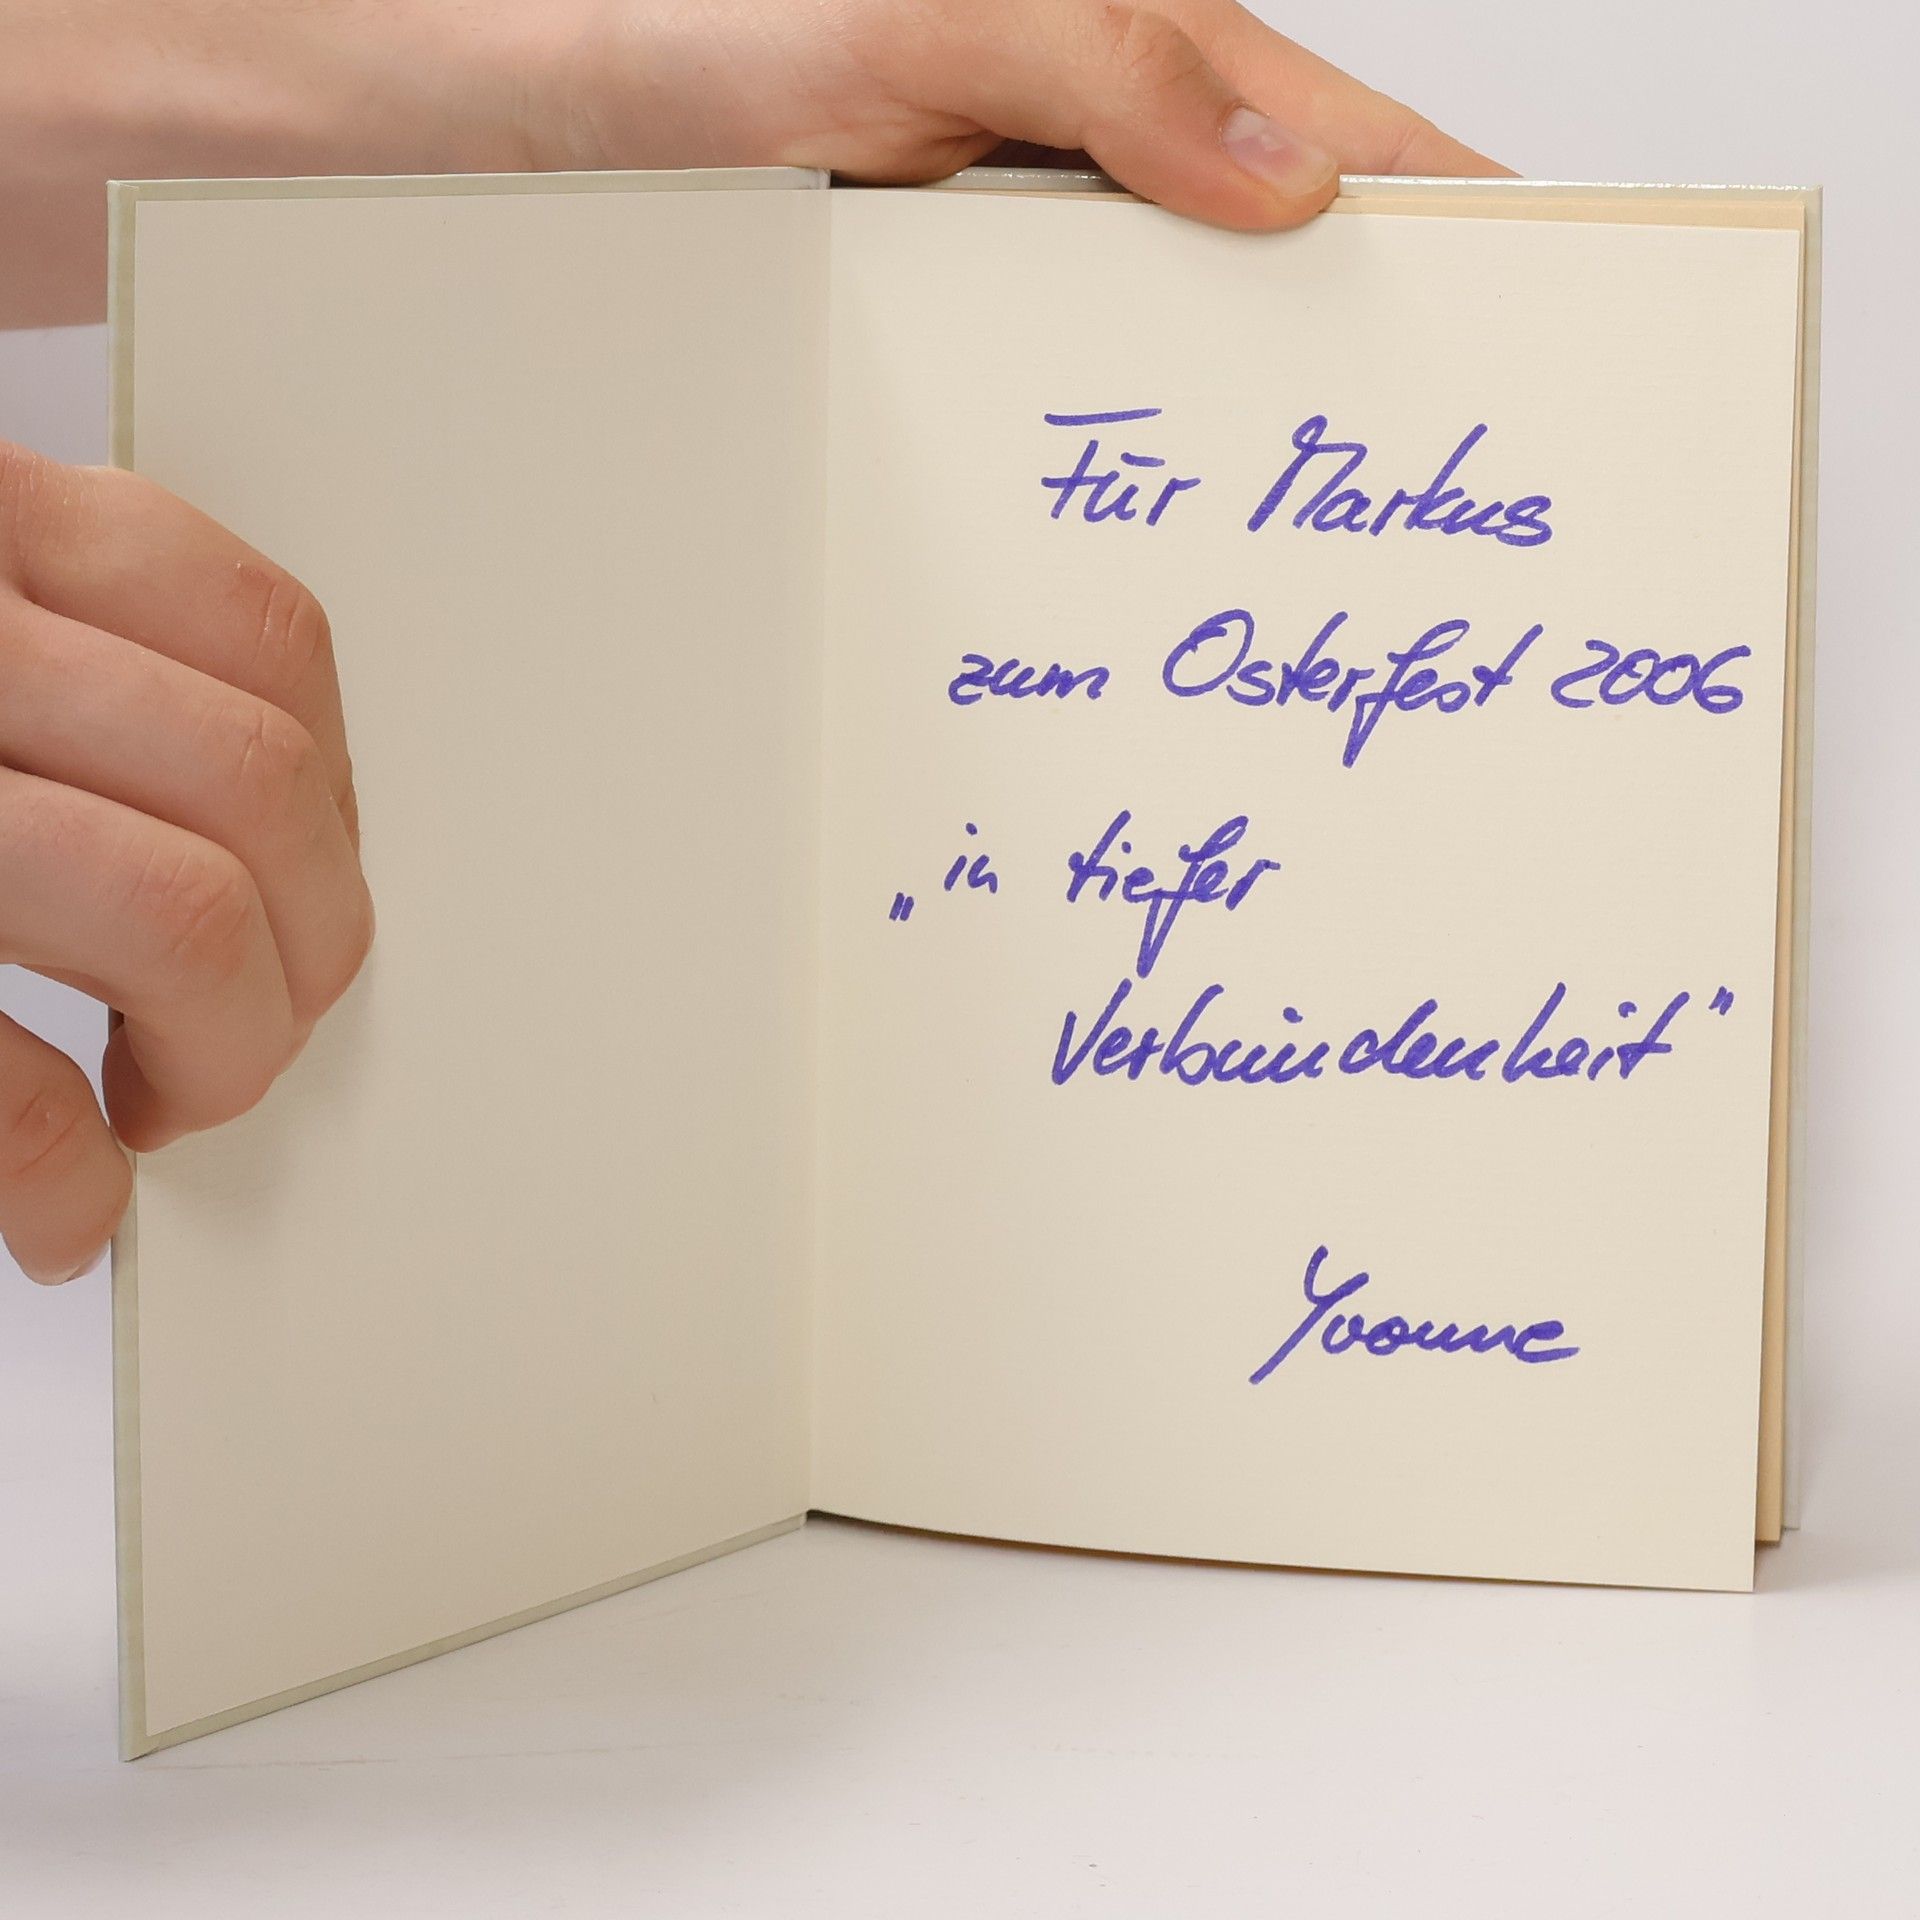 Für Markus
zum Osterfest 2006
„in tiefer
Verbundenheit"
Yvonne